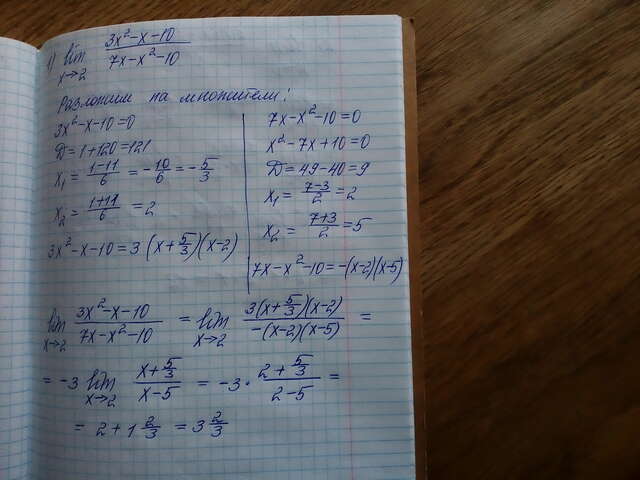 1) lim x→2 (3x²-x-10)/(7x-x²-10)
Разложим на множители:
3x²-x-10=0
D=1+120=121
x₁=(1-11)/6=-10/6=-5/3
x₂=(1+11)/6=2
3x²-x-10=3(x+5/3)(x-2)
7x-x²-10=0
x²-7x+10=0
D=49-40=9
x₁=(7-3)/2=2
x₂=(7+3)/2=5
7x-x²-10=-(x-2)(x-5)
lim x→2 (3x²-x-10)/(7x-x²-10) = lim x→2 (3(x+5/3)(x-2))/(-(x-2)(x-5)) =
= -3 lim x→2 (x+5/3)/(x-5) = -3·(2+5/3)/(2-5) =
= 2+1 2/3 = 3 2/3